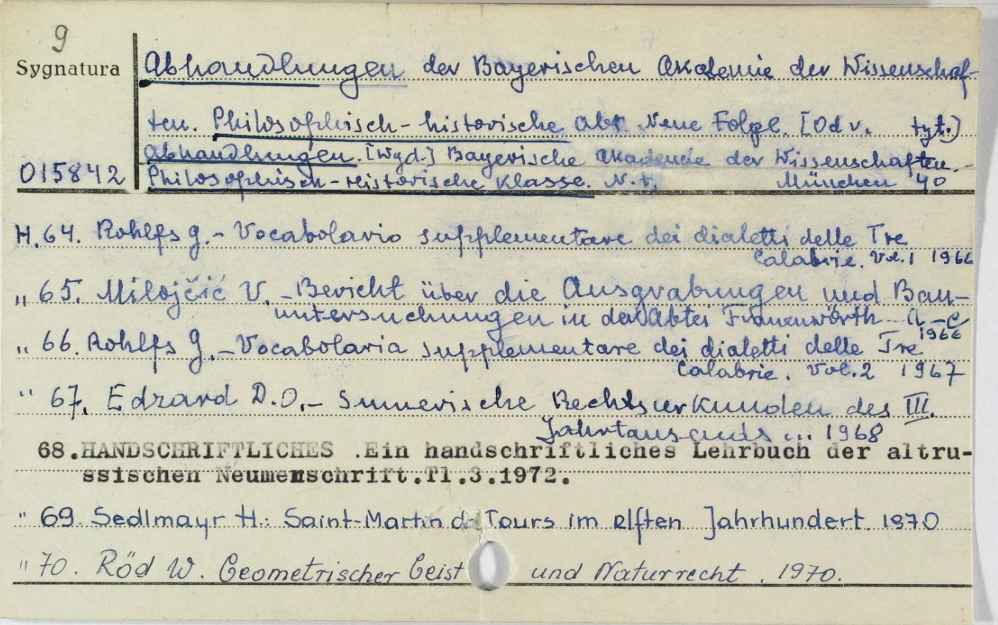 9
Sygnatura
Abhandlungen der Bayerischen Akademie der Wissenschaf-
ten. Philosophisch-historische Abt. Neue Folge. [Od v. tyt.]
015842
Abhandlungen. [Wyd.] Bayerische Akademie der Wissenschaften.
Philosophisch-Historische Klasse. N. F. München 40
H. 64. Rohlfs G. - Vocabolario supplementare dei dialetti delle Tre
Calabrie. Vol. 1 1966
„ 65. Milojčić V. - Bericht über die Ausgrabungen und Bau-
untersuchungen in der Abtei Frauenwörth A-C
1966
„ 66. Rohlfs G. - Vocabolaria supplementare dei dialetti delle Tre
Calabrie. Vol. 2 1967
" 67. Edzard D.O. - Sumerische Rechtsurkunden des III.
Jahrtausends ... 1968
68. HANDSCHRIFTLICHES .Ein handschriftliches Lehrbuch der altru-
ssischen Neumenschrift.Tl.3.1972.
" 69. Sedlmayr H.: Saint-Martin de Tours im elften Jahrhundert 1970
" 70. Röd W. Geometrischer Geist und Naturrecht. 1970.